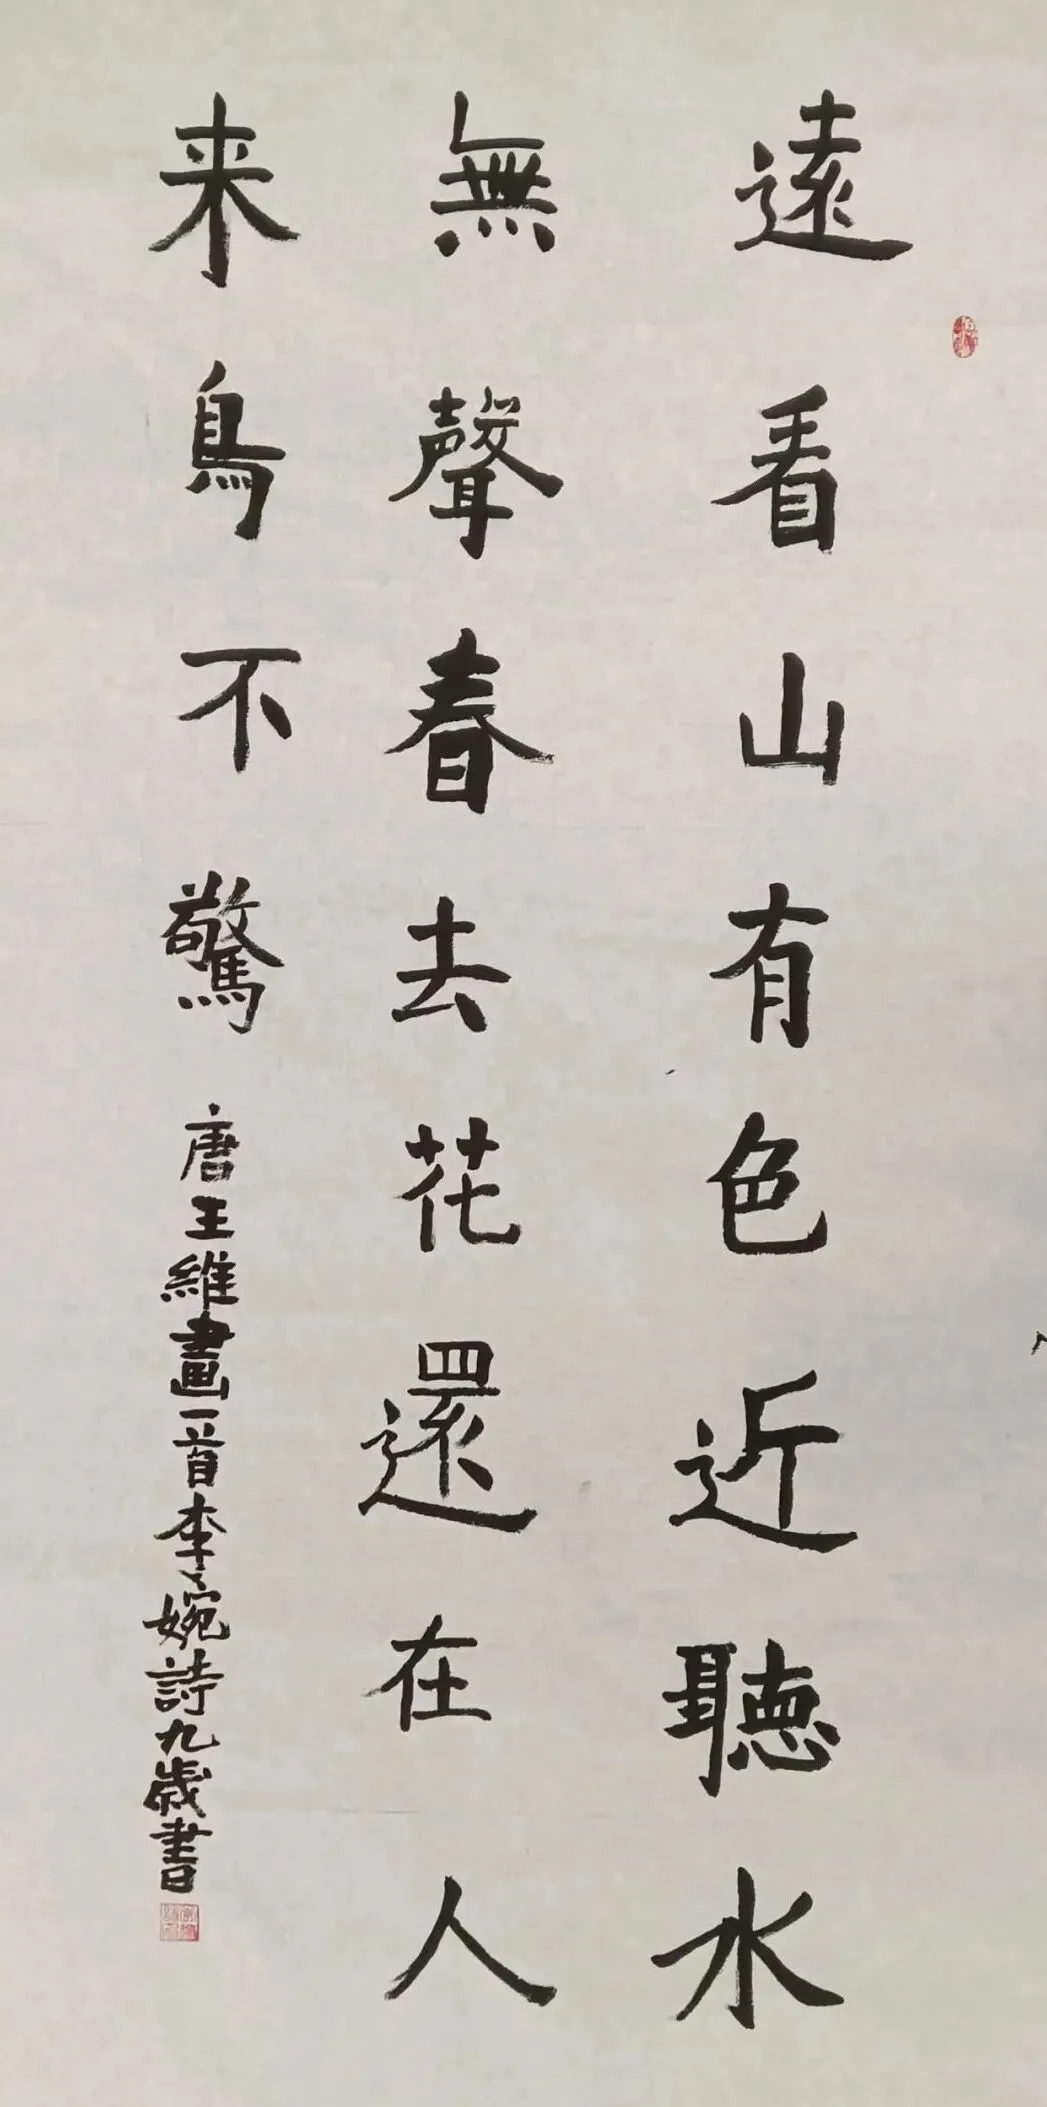 遠看山有色近聽水
無聲春去花還在人
来鳥不驚
唐王維畫一首李婉詩九歲書